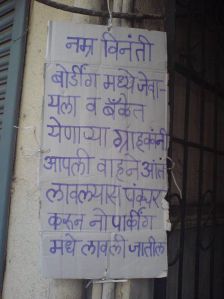 नम्र विनंती
बोर्डींग मध्ये जेवा-
यला व बॅकेत
येणाऱ्या ग्राहकंनी
आपली वाहने आंत
लावल्यास पंक्चर
करून नो पार्कींग
मधे लावली जातील